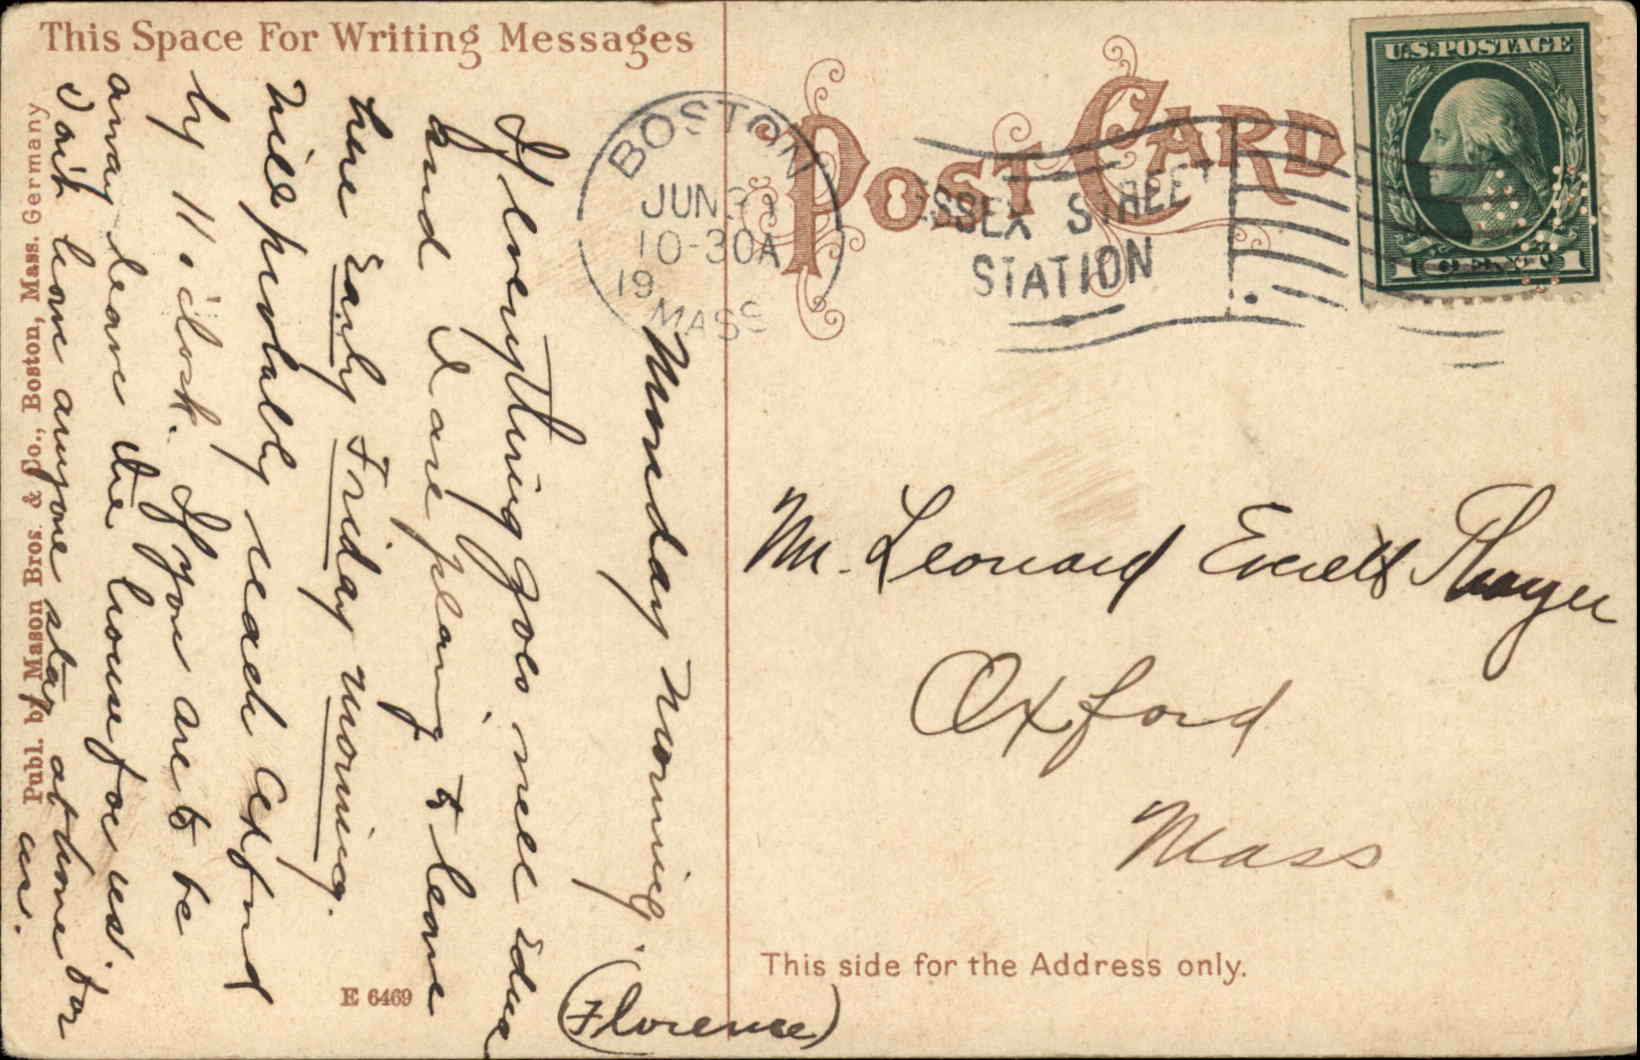 This Space For Writing Messages
POST CARD
U.S. POSTAGE
BOSTON
JUN
10-30A
19
MASS
ESSEX STREET
STATION
1
1
Monday morning.
If everything goes well Edna
and I are planing to leave
here Early Friday morning.
Will probably reach Oxford
by 11 o'clock. If you are to be
away leave the house for us.
Don't have anyone stay at home for
us.
(Florence)
Mr. Leonard Everett Thayer
Oxford
Mass
This side for the Address only.
E 6469
Publ. by Mason Bros. & Co., Boston, Mass. Germany